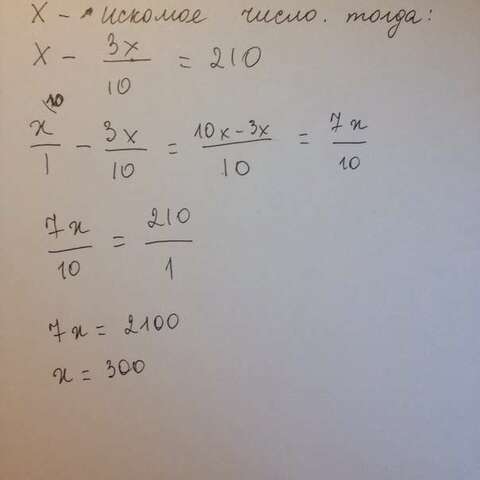 X - искомое число. тогда:
X - 3x/10 = 210
x/1 (10 - 3x/10 = (10x-3x)/10 = 7x/10
7x/10 = 210/1
7x = 2100
x = 300